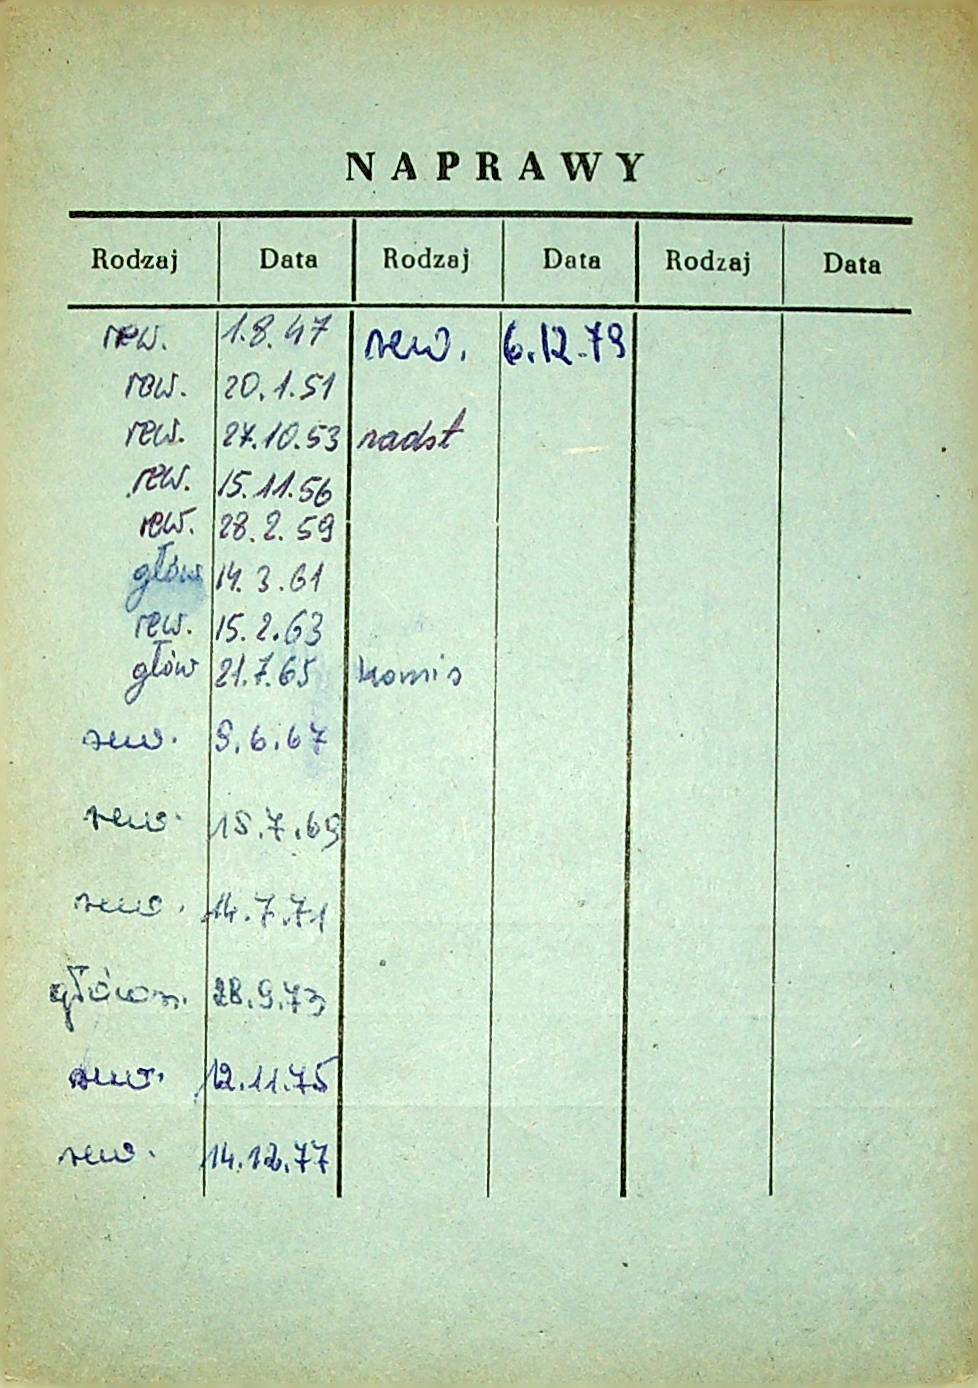 NAPRAWY
Rodzaj Data Rodzaj Data Rodzaj Data
rew. 1.8.47 rew. 6.12.79
rew. 20.1.51
rew. 27.10.53 nadst
rew. 15.11.56
rew. 28.2.59
głów 14.3.61
rew. 15.2.63
głów 21.7.65 komis
rew. 9.6.67
rew. 15.7.69
rew. 14.7.71
główn. 28.9.73
rew. 12.11.75
rew. 14.12.77